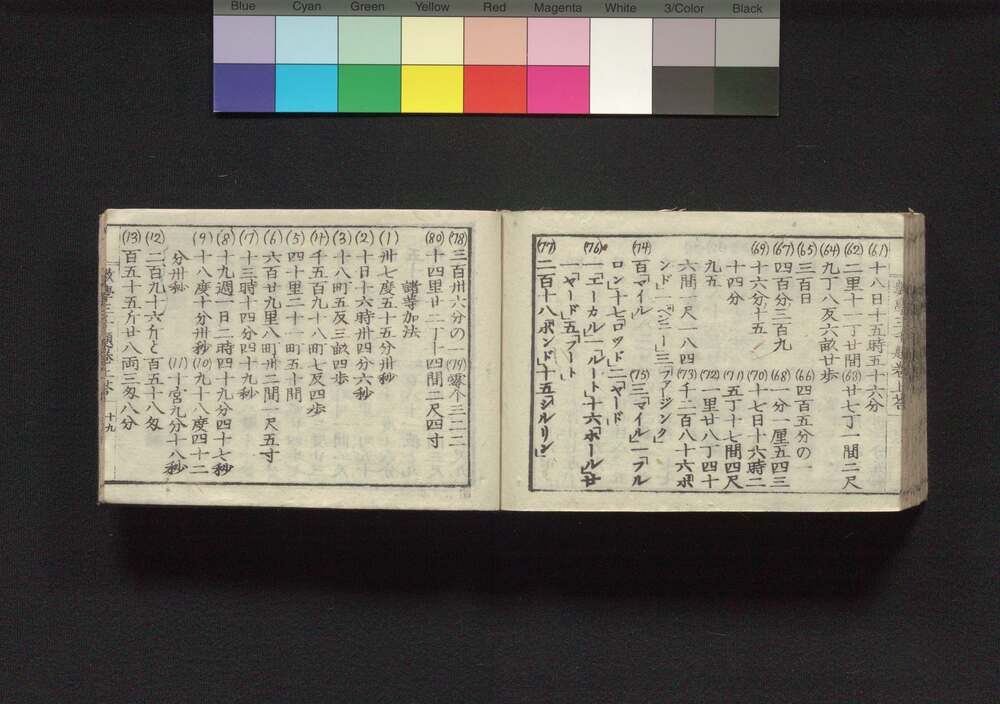 Blue Cyan Green Yellow Red Magenta White 3/Color Black
(61)十八日十五時五十六分
(62)二里十一丁廿間(63)廿七丁一間二尺
(64)九丁八反六畝廿歩
(65)三百日(66)四百五分の一
(67)四百分三百九(68)一分一厘五四三
(69)十六分十五(70)十七日十六時二
十四分(71)五丁十七間四尺
九五(72)一里廿八丁四十
六間一尺一八四(73)千二百八十六「ポ
ンド」一「ペンニー」三「ファジング」
(74)百「マイル(75)三「マイル」一「フル
ロン」十七「ロッド」二「ヤード」
(76)一「エーカル」一「ルート」十六「ポール」廿
一「ヤード」五「フート」
(77)二百十八「ポンド」十五「シルリン」
(78)三百卅六分の(79)零个三二二
(80)十四里廿二丁十四間二尺四寸
諸等加法
(1)卅七度五十五分卅秒
(2)十日十六時卅四分六秒
(3)十八町五反三畝四歩
(4)千五百九十八町七反四歩
(5)四十里二十一町五十間
(6)六百廿九里八町卅二間一尺五寸
(7)十三時十四分四十九秒
(8)十九週一日二時四十九分四十七秒
(9)十八度十分卅秒(10)九十八度四十二
分卅秒(11)十宮九分十八秒
(12)二百九十六斤と百五十八匁
(13)百五十五斤廿八両三匁八分
十九